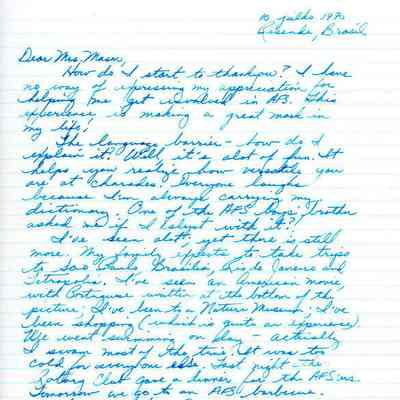 10 julho 1970
Resende, Brasil
Dear Mrs. Mason,
How do I start to thank you? I have
no way of expressing my appreciation for
helping me get involved in AFS. This
experience is making a great mark in
my life!
The language barrier - how do I
explain it? Well, it's alot of fun. It
helps you realize how versatile you
are at charades! Everyone laughs
because I'm always carrying my
dictionary. One of the AFS boys' brother
asked me if I slept with it!
I've seen alot, yet there is still
more. My family expects to take trips
to Sao Paulo, Brasilia, Rio de Janeiro and
Petropolis. I've seen an American movie,
with Portugese written at the bottom of the
picture; I've been to a Nature Museum; I've
been shopping (which is quite an experience).
We went swimming one day - actually
I swam most of the time! It was too
cold for everyone else. Last night - the
Rotary Club gave a dinner for the AFSers.
Tomorrow we go to an AFS barbecue.